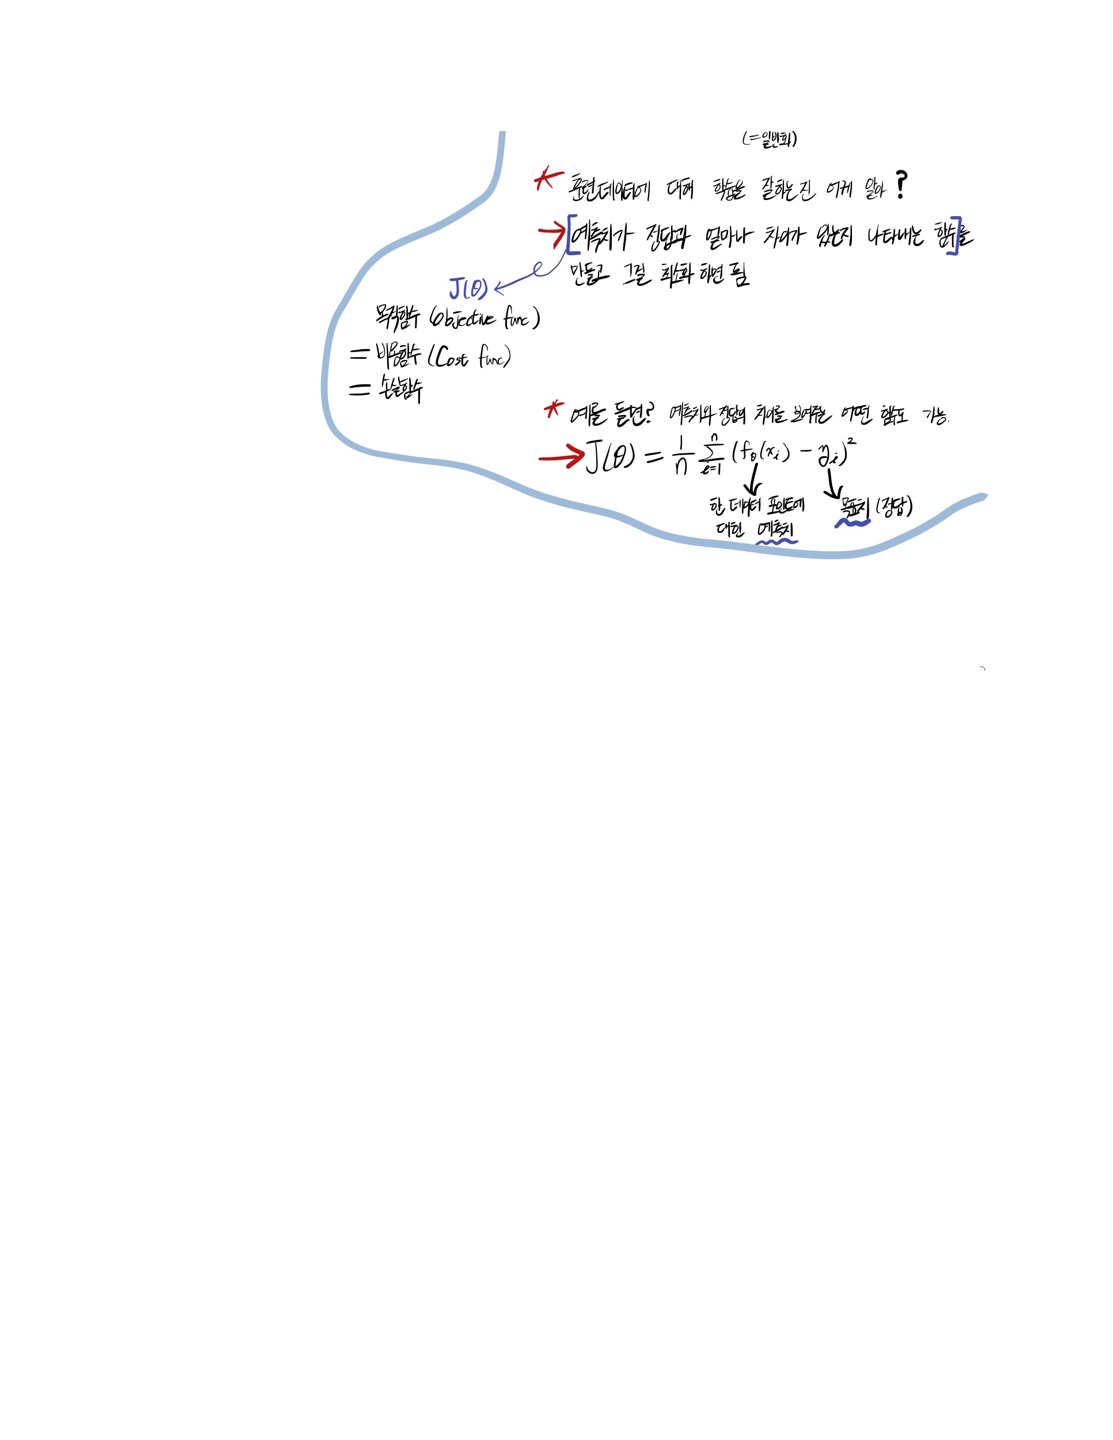 (=일반화)
* 훈련데이터에 대해 학습을 잘하는진 어케 알아?
→ [예측치가 정답과 얼마나 차이가 있는지 나타내는 함수]를
만들고 그걸 최소화 하면 됨
J(θ)
목적함수 (objective func)
= 비용함수 (Cost func)
= 손실함수
* 예를 들면? 예측치와 정답의 차이를 보여주는 어떤 함수도 가능.
→ J(θ) = 1/n Σ_{i=1}^{n} (f_θ(x_i) - y_i)²
한 데이터 포인트에
대한 예측치
목표치 (정답)